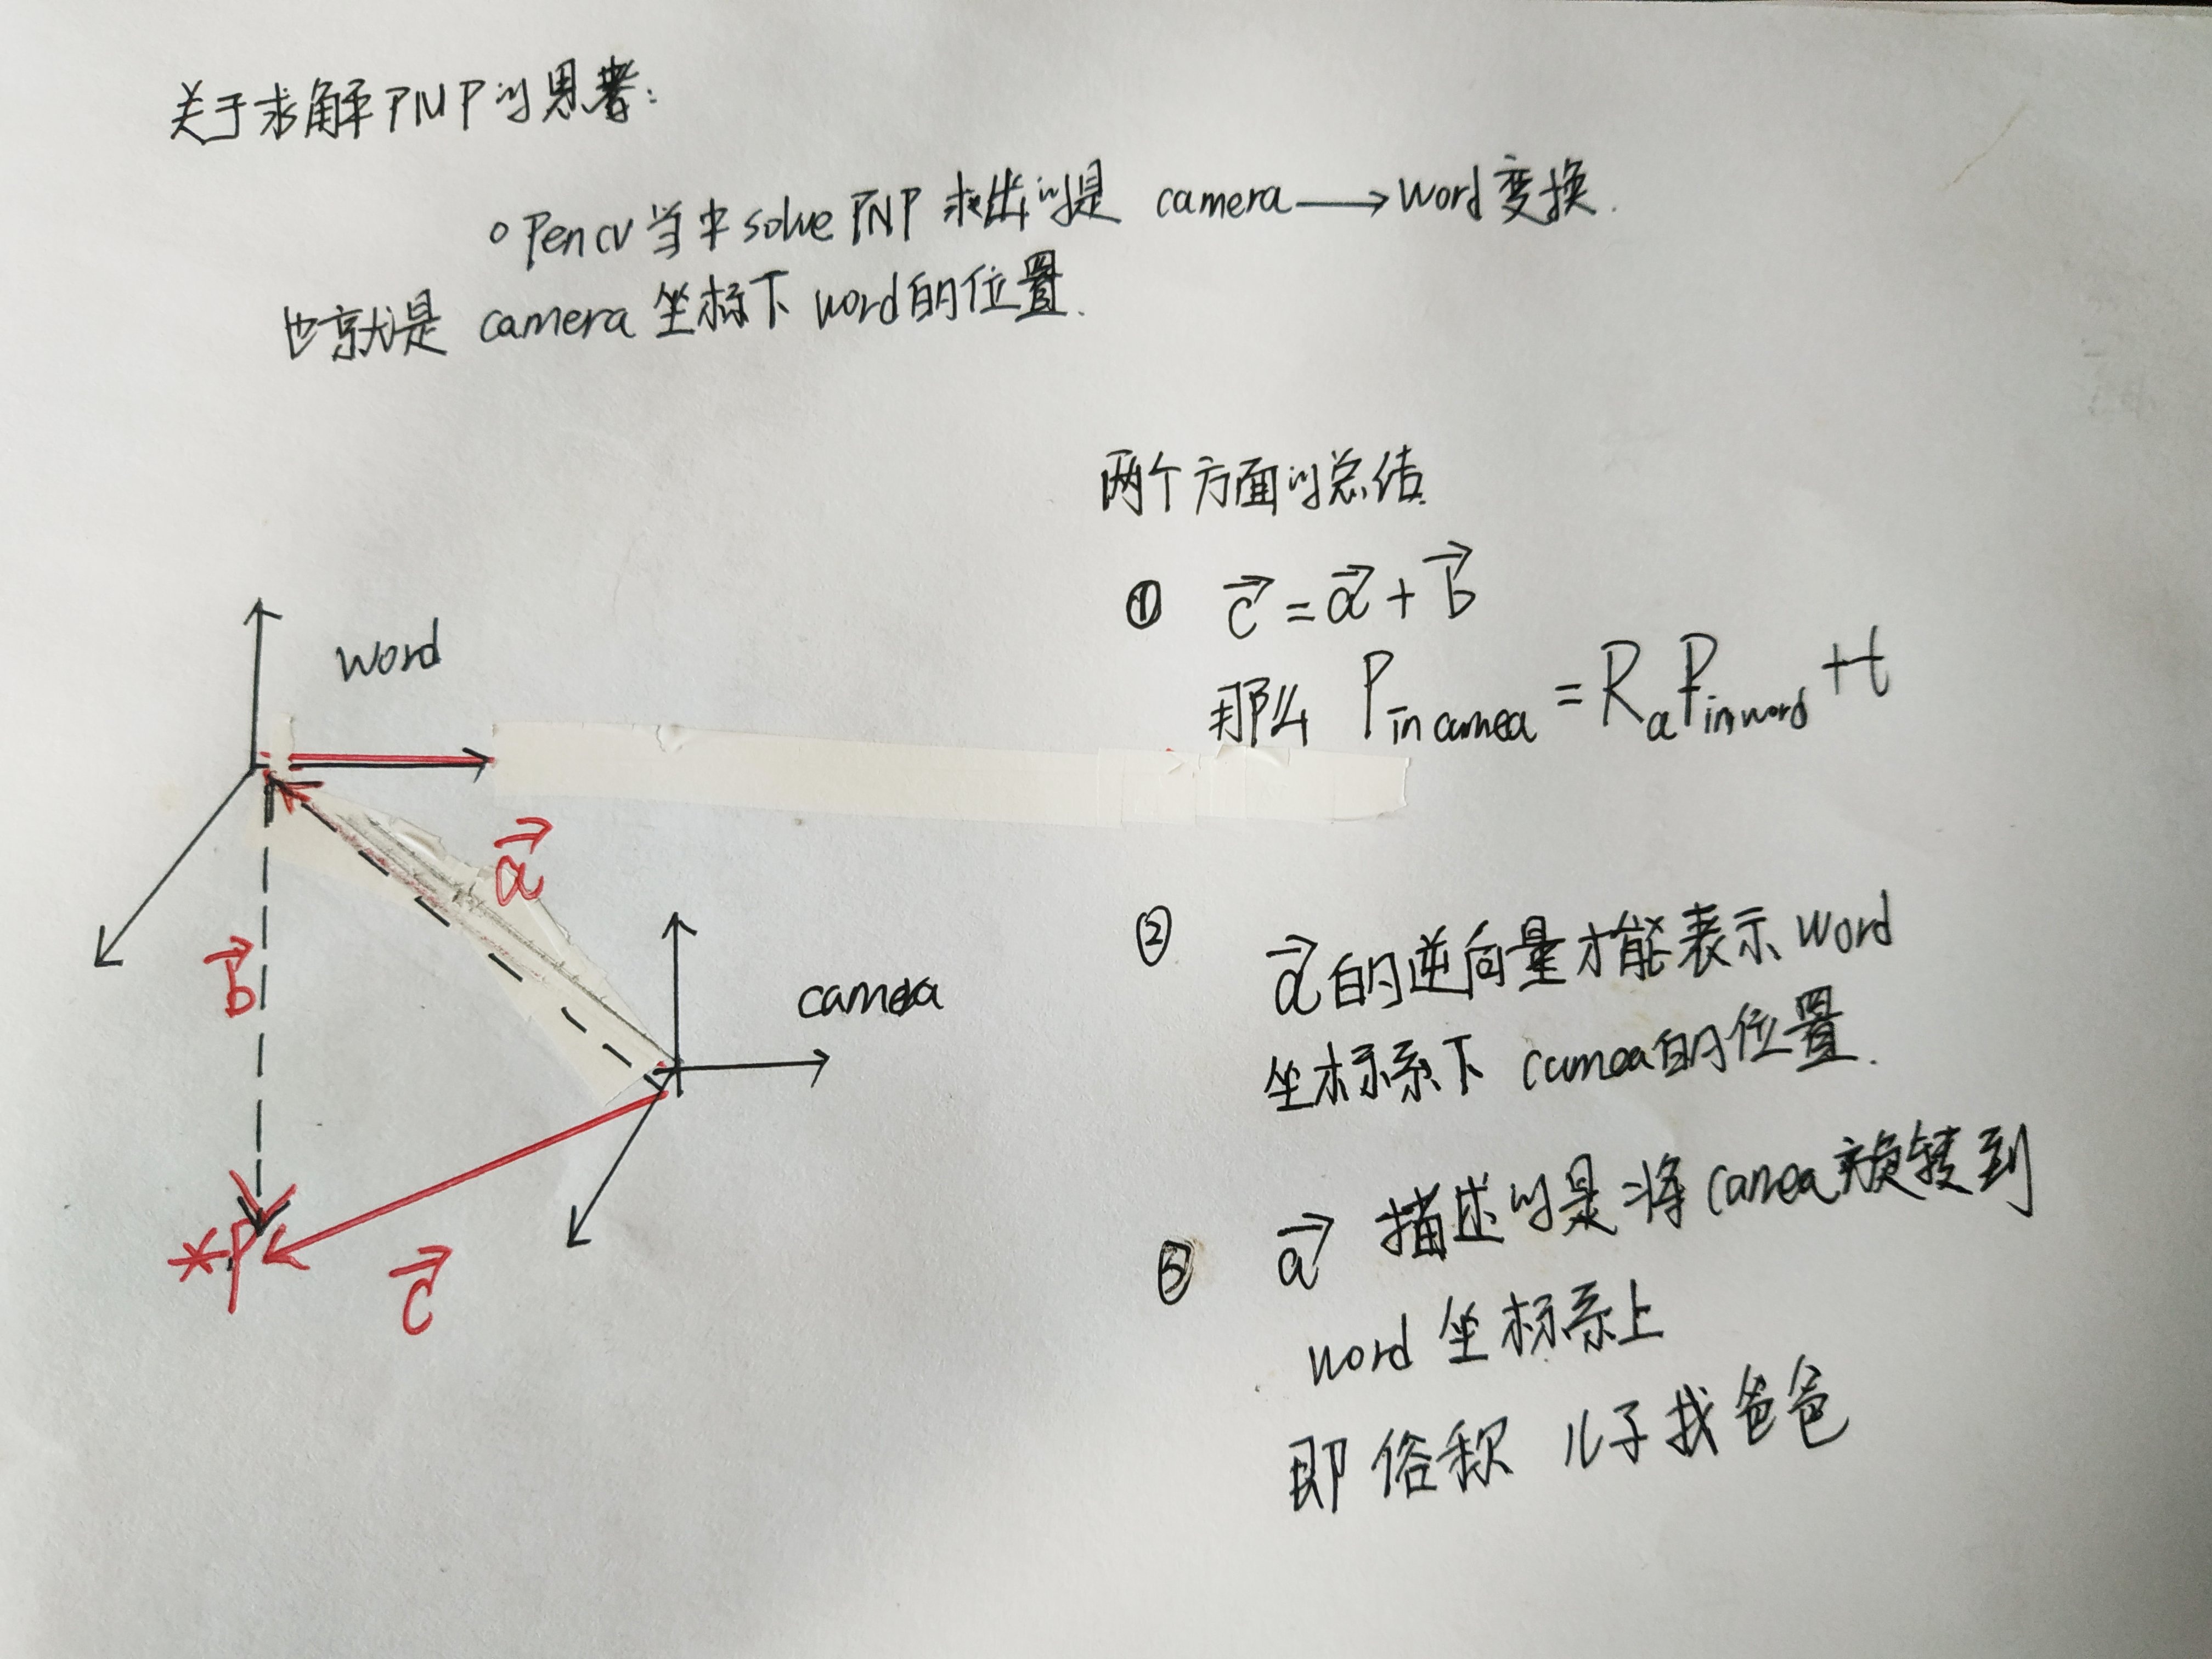 关于求解PNP的思考：
opencv当中solvePNP求出的是 camera→word变换.
也就是 camera坐标下 word的位置.
两个方面的总结.
① c = a + b
那么 P in camea = Ra P in word + t
word
a
b
camera
*P
c
② a的逆向量才能表示word
坐标系下 camea的位置.
③ a 描述的是将camea旋转到
word 坐标系上
即俗称 儿子找爸爸